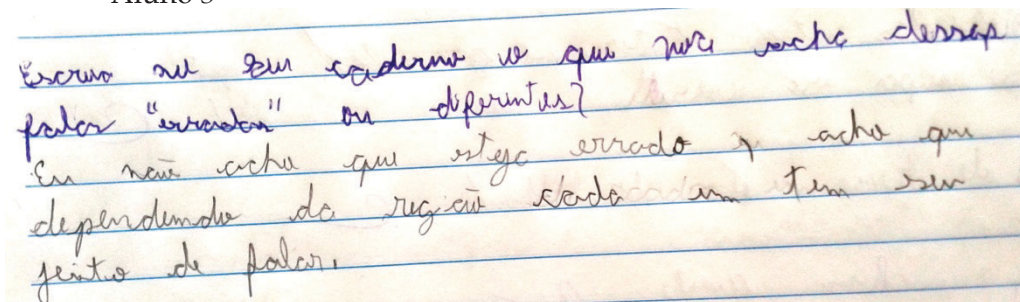 Aluno 3
Escreva no seu caderno o que você acha dessas
falas "erradas" ou diferentes?
Eu não acho que esteja errado, acho que
dependendo da região cada um tem seu
jeito de falar.